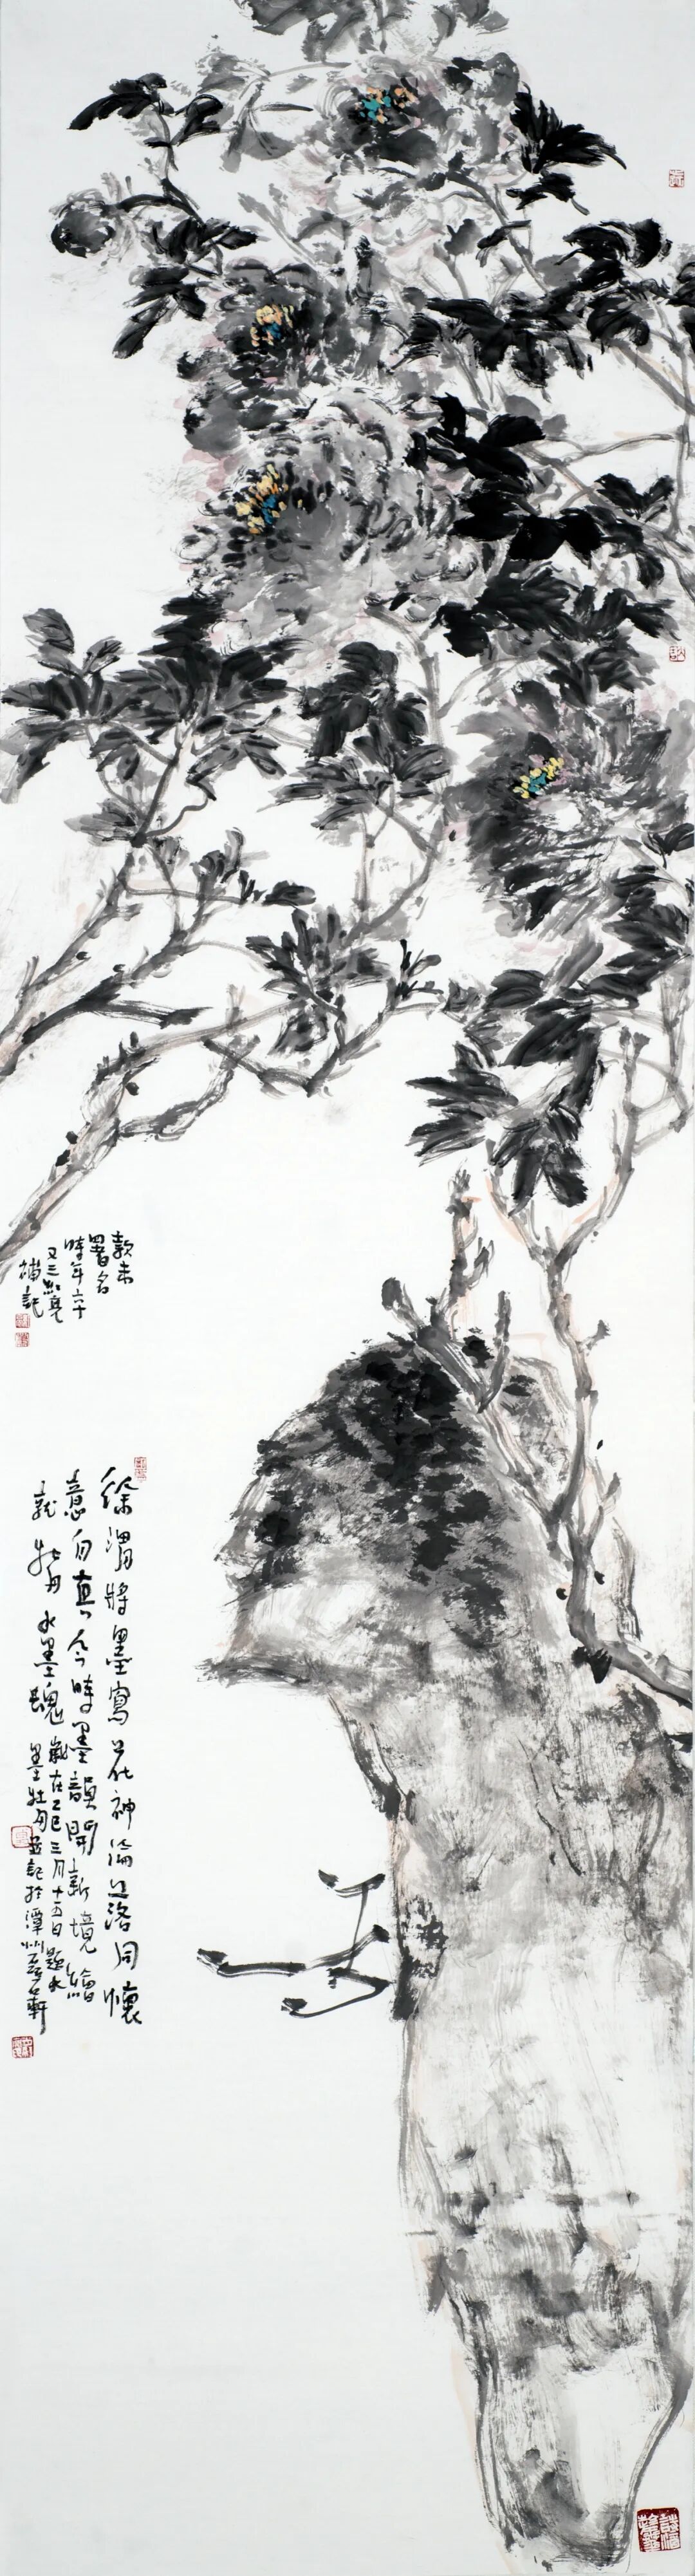 款未
署名
時年六十
又三亮
補記
徐渭將墨寫花神淪落同懷
意自真今時墨韻開新境繪
就牡丹水墨魂
歲在乙巳三月十五日題水
墨牡丹並記於潭州軒